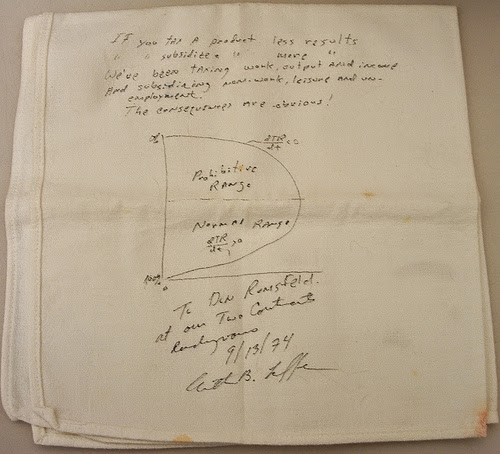 IF you tax A product less results
" " subsidize A " more "
We've been taxing work, output And income
And subsidizing non-work, leisure and un-
employment.
The consequences are obvious!
∂TR/∂t <0
Prohibitive
Range
Normal Range
∂TR/∂t >0
100%
0
To Don Rumsfeld
at our Two Continents
Rendezvous
9/13/74
Arthur B. Laffer